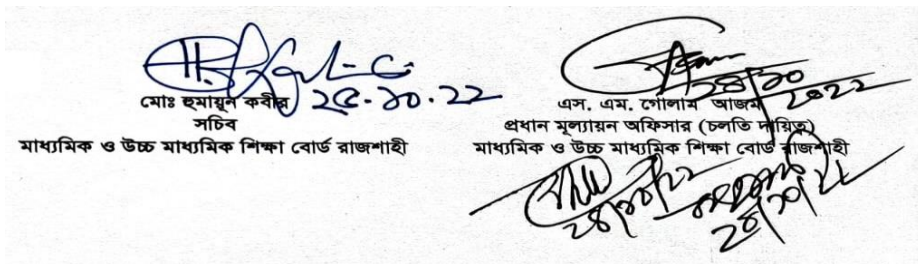 ২৫.১০.২২
মোঃ হুমায়ুন কবীর
সচিব
মাধ্যমিক ও উচ্চ মাধ্যমিক শিক্ষা বোর্ড রাজশাহী
২৪/১০/২০২২
এস. এম. গোলাম আজম
প্রধান মূল্যায়ন অফিসার (চলতি দায়িত্ব)
মাধ্যমিক ও উচ্চ মাধ্যমিক শিক্ষা বোর্ড রাজশাহী
২৪/১০/২২